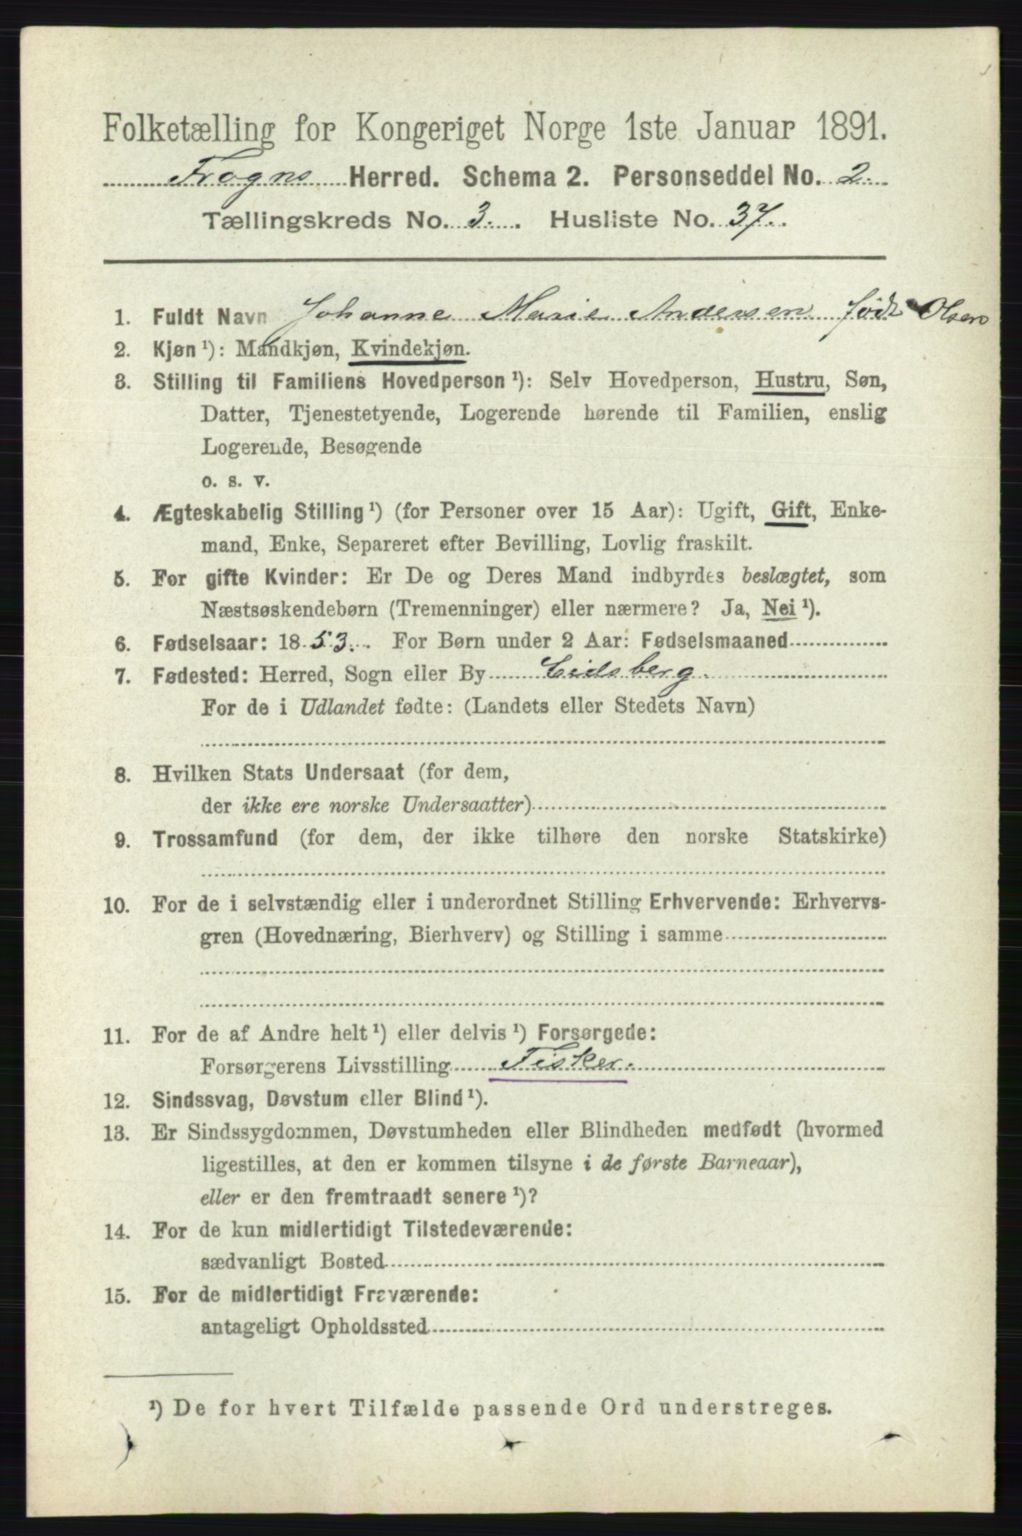 Folketælling for Kongeriget Norge 1ste Januar 1891.
Frogns Herred. Schema 2. Personseddel No. 2.
Tællingskreds No. 3. Husliste No. 37.
1. Fuldt Navn Johanne Marie Andersen født Olsen
2. Kjøn ¹): Mandkjøn, Kvindekjøn.
3. Stilling til Familiens Hovedperson ¹): Selv Hovedperson, Hustru, Søn,
Datter, Tjenestetyende, Logerende hørende til Familien, enslig
Logerende, Besøgende
o. s. v.
4. Ægteskabelig Stilling ¹) (for Personer over 15 Aar): Ugift, Gift, Enke-
mand, Enke, Separeret efter Bevilling, Lovlig fraskilt.
5. For gifte Kvinder: Er De og Deres Mand indbyrdes beslægtet, som
Næstsøskendebørn (Tremenninger) eller nærmere? Ja, Nei ¹).
6. Fødselsaar: 1853. For Børn under 2 Aar: Fødselsmaaned
7. Fødested: Herred, Sogn eller By Eidsberg.
For de i Udlandet fødte: (Landets eller Stedets Navn)
8. Hvilken Stats Undersaat (for dem,
der ikke ere norske Undersaatter)
9. Trossamfund (for dem, der ikke tilhøre den norske Statskirke)
10. For de i selvstændig eller i underordnet Stilling Erhvervende: Erhvervs-
gren (Hovednæring, Bierhverv) og Stilling i samme
11. For de af Andre helt ¹) eller delvis ¹) Forsørgede:
Forsørgerens Livsstilling Fisker.
12. Sindssvag, Døvstum eller Blind ¹).
13. Er Sindssygdommen, Døvstumheden eller Blindheden medfødt (hvormed
ligestilles, at den er kommen tilsyne i de første Barneaar),
eller er den fremtraadt senere ¹)?
14. For de kun midlertidigt Tilstedeværende:
sædvanligt Bosted
15. For de midlertidigt Fraværende:
antageligt Opholdssted
¹) De for hvert Tilfælde passende Ord understreges.